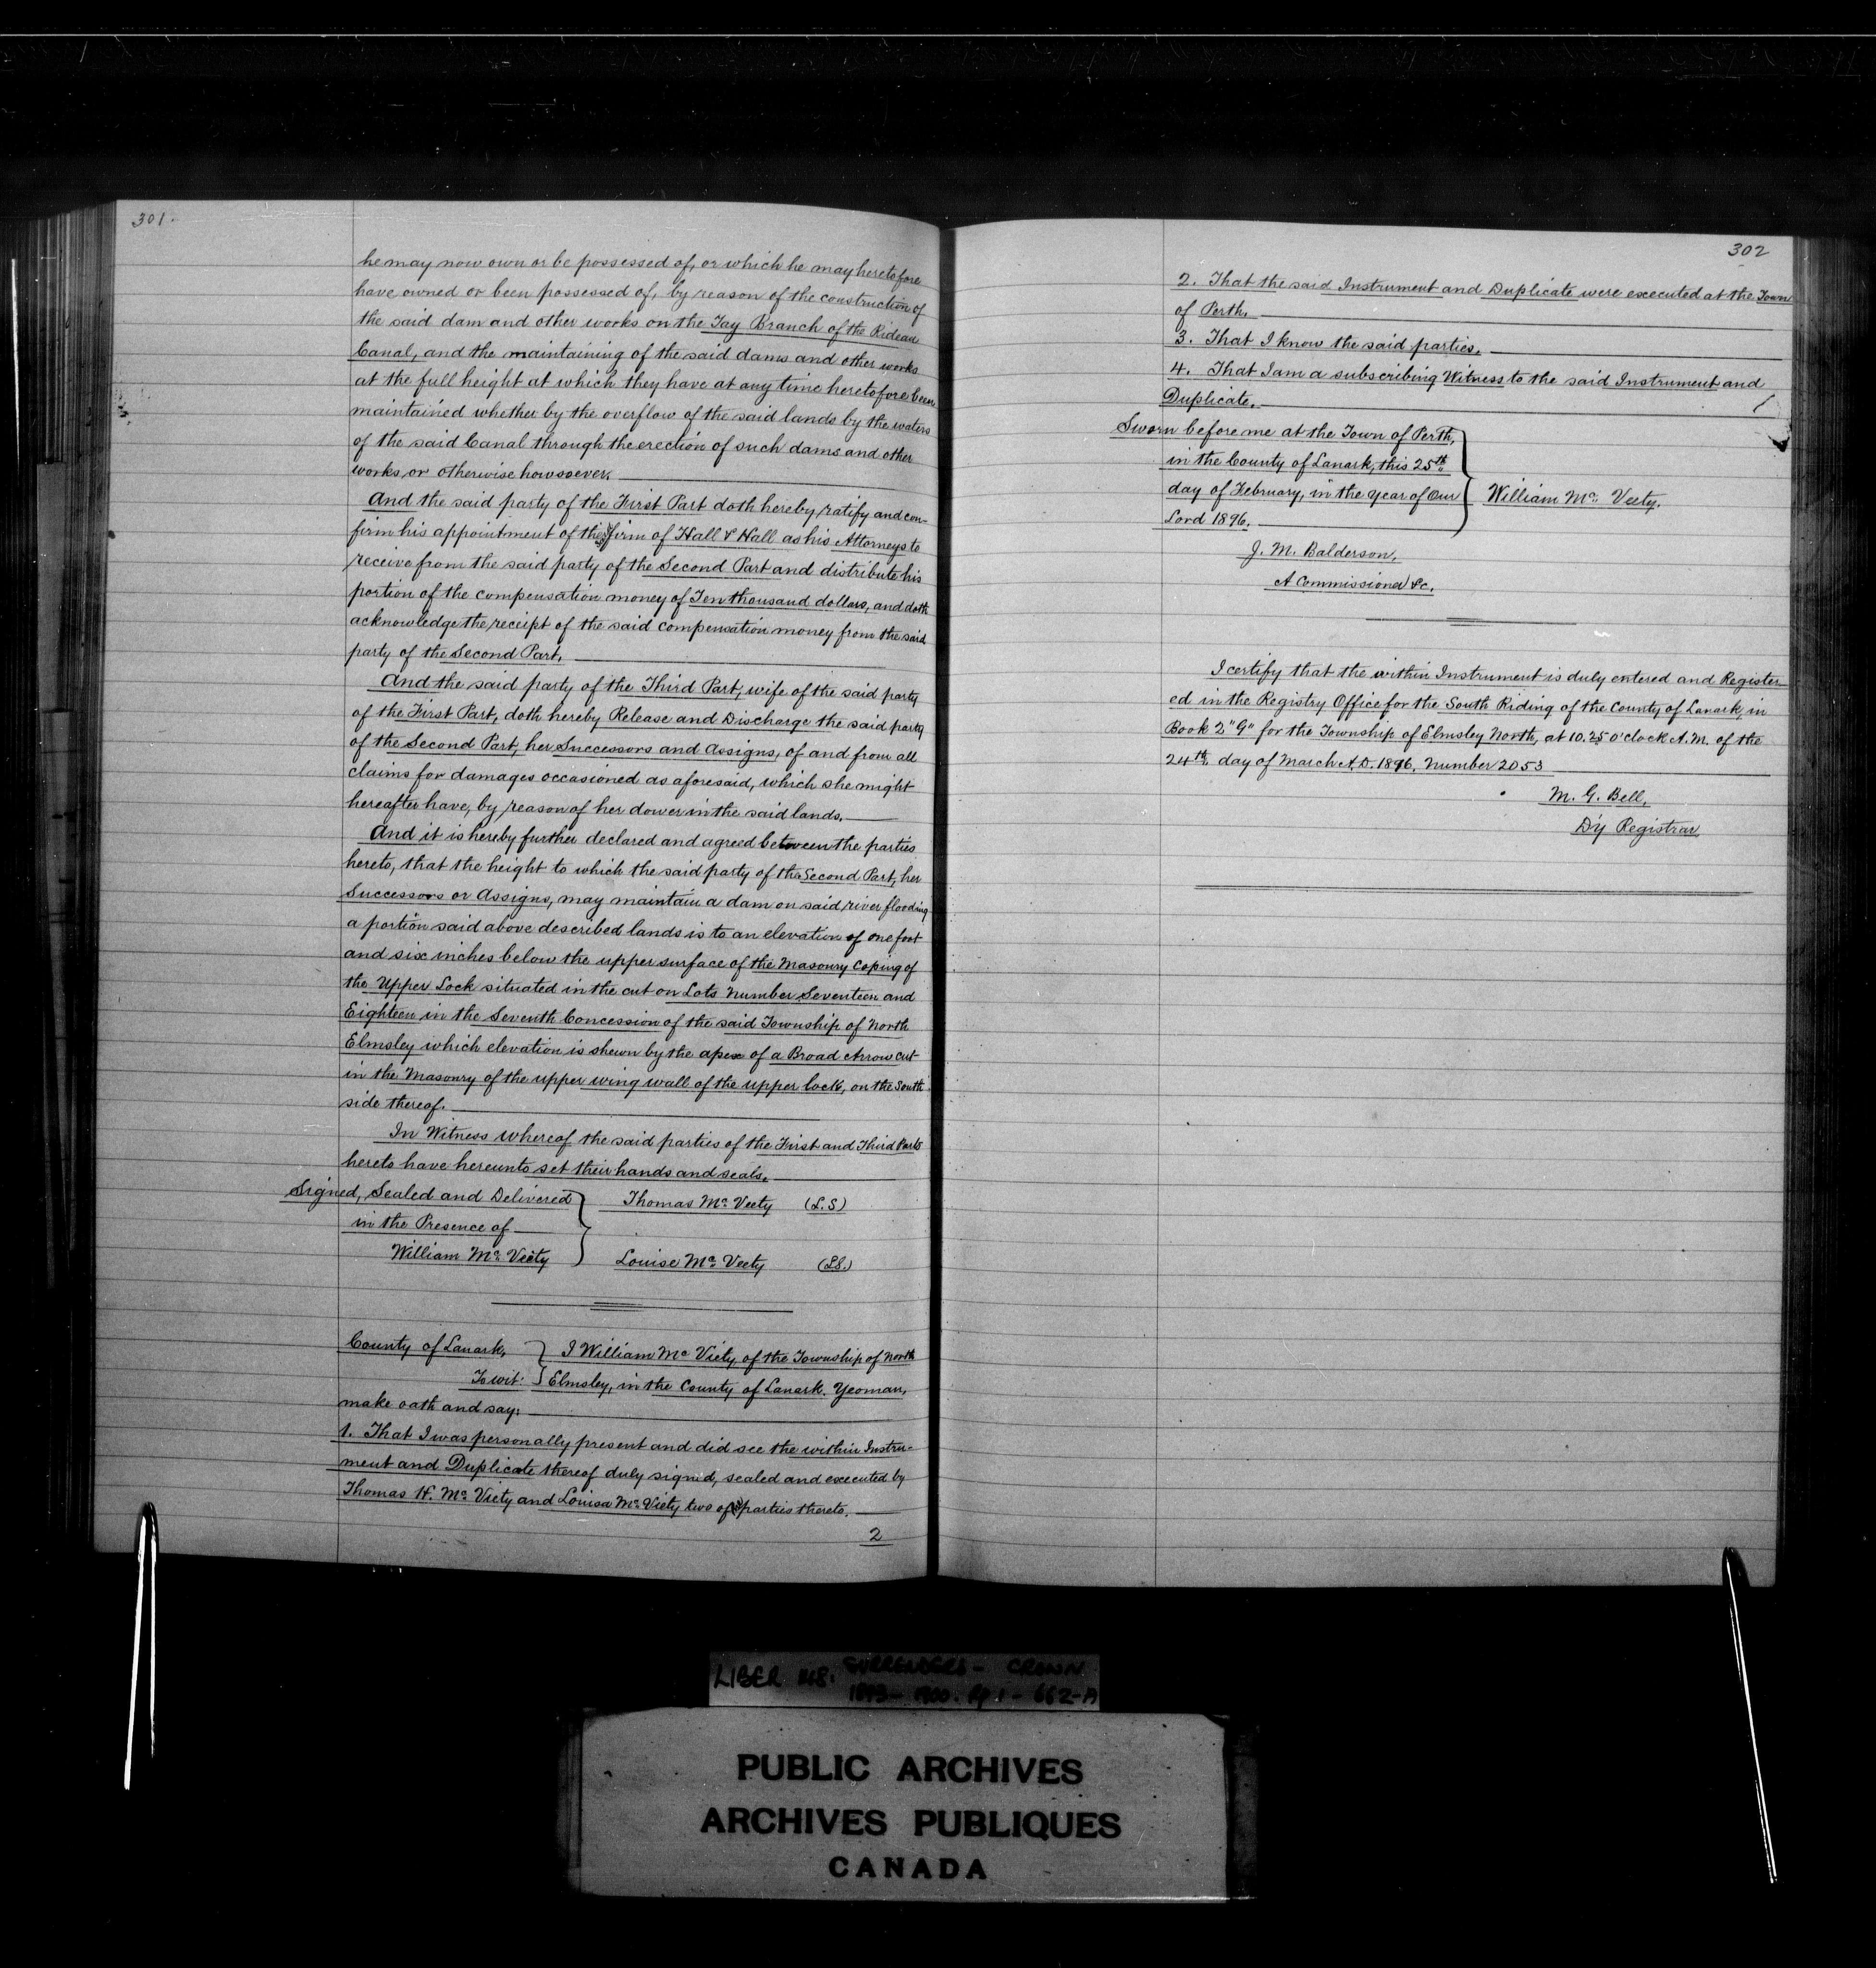 301.
he may now own or be possessed of, or which he may heretofore
have owned or been possessed of, by reason of the construction of
the said dam and other works on the Tay Branch of the Rideau
Canal, and the maintaining of the said dams and other works
at the full height at which they have at any time heretofore been
maintained whether by the overflow of the said lands by the waters
of the said Canal through the erection of such dams and other
works or otherwise howsoever.
And the said party of the First Part doth hereby ratify and con-
firm his appointment of the firm of Hall & Hall as his Attorneys to
receive from the said party of the Second Part and distribute his
portion of the compensation money of Ten thousand dollars, and doth
acknowledge the receipt of the said compensation money from the said
party of the Second Part.
And the said party of the Third Part, wife of the said party
of the First Part, doth hereby Release and Discharge the said party
of the Second Part, her Successors and Assigns, of and from all
claims for damages occasioned as aforesaid, which she might
hereafter have, by reason of her dower in the said lands.
And it is hereby further declared and agreed between the parties
hereto, that the height to which the said party of the Second Part, her
Successors or Assigns, may maintain a dam on said river flooding
a portion said above described lands is to an elevation of one foot
and six inches below the upper surface of the Masonry Coping of
the Upper Lock situated in the cut on Lots Number Seventeen and
Eighteen in the Seventh Concession of the said Township of North
Elmsley which elevation is shewn by the apex of a Broad Arrow cut
in the Masonry of the upper wing wall of the upper lock, on the South
side thereof.
In Witness whereof the said parties of the First and Third Parts
hereto have hereunto set their hands and seals.
Signed, Sealed and Delivered } Thomas Mc Veety (L.S)
in the Presence of
William Mc Veety } Louise Mc Veety (LS.)
County of Lanark, } I William Mc Viety of the Township of North
To wit: } Elmsley, in the County of Lanark. Yeoman,
make oath and say:
1. That I was personally present and did see the within Instru-
ment and Duplicate thereof duly signed, sealed and executed by
Thomas H. Mc Viety and Louisa Mc Viety two of the parties thereto.
2
302
2. That the said Instrument and Duplicate were executed at the Town
of Perth.
3. That I know the said parties.
4. That I am a subscribing Witness to the said Instrument and
Duplicate.
Sworn before me at the Town of Perth,
in the County of Lanark, this 25th
day of February, in the year of Our } William Mc Veety.
Lord 1896.
J. M. Balderson,
A Commissioner &c.
I certify that the within Instrument is duly entered and Register
ed in the Registry Office for the South Riding of the County of Lanark, in
Book 2 "G" for the Township of Elmsley North, at 10.25 o'clock A.M. of the
24th day of March A.D. 1896. Number 2053
M. G. Bell,
D'y Registrar
LIBER 148: SURRENDERS - CROWN
1893 - 1900. Pp. 1 - 662-A
PUBLIC ARCHIVES
ARCHIVES PUBLIQUES
CANADA